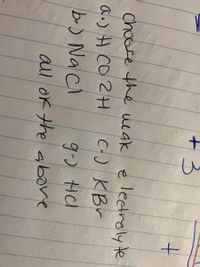 + 3
+
choose the weak electrolyte
a.) HCO2H c.) KBr
b.) NaCl g.) HCl
all of the above